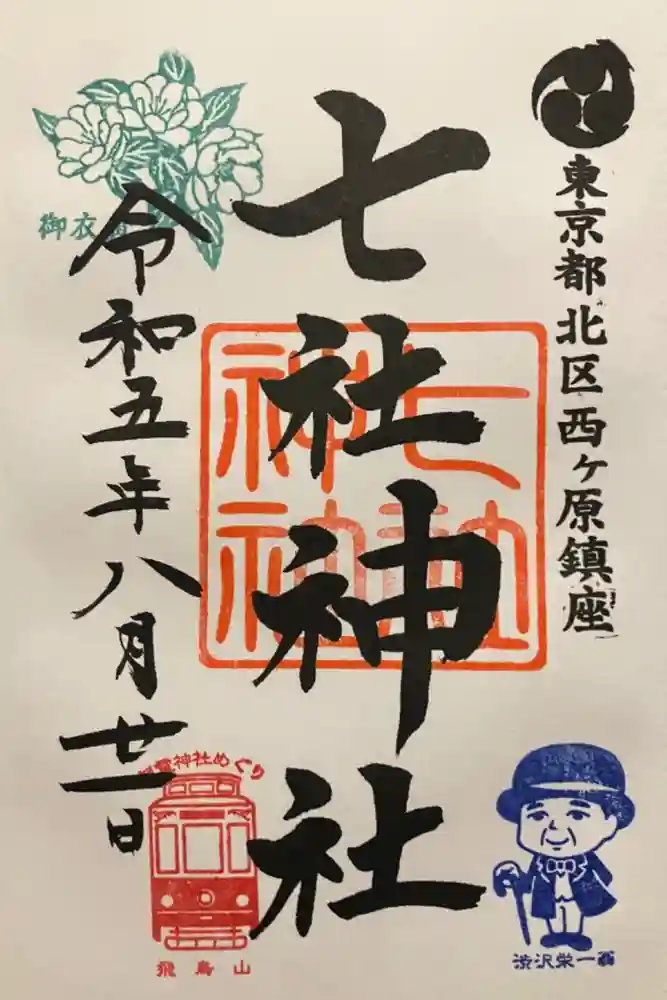 東京都北区西ヶ原鎮座
七社神社
七社
神社
令和五年八月廿一日
御衣
神社めぐり
飛鳥山
渋沢栄一翁